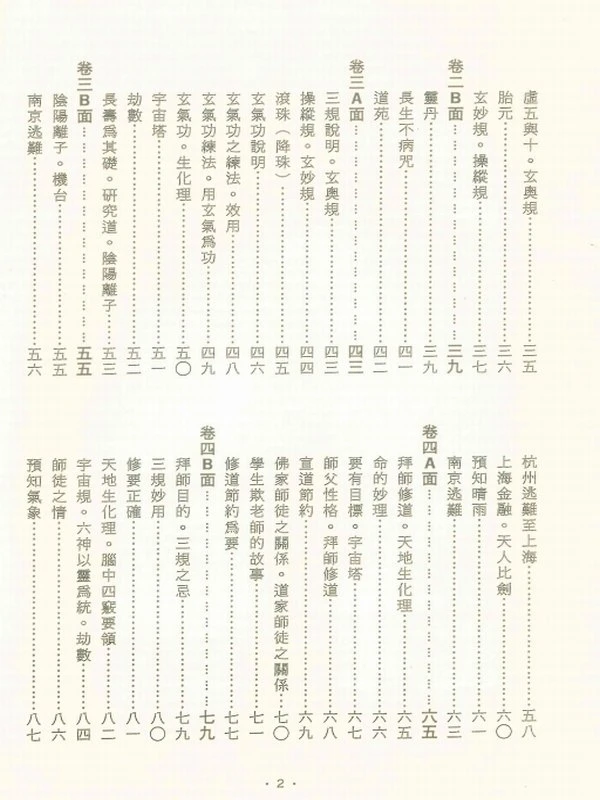 虛五與十。玄奧規……三五
胎元……三六
玄妙規。操縱規……三七
卷二B面……三九
靈丹……三九
長生不病咒……四一
道苑……四二
卷三A面……四三
三規說明。玄奧規……四三
操縱規。玄妙規……四四
滾珠（降珠）……四五
玄氣功說明……四六
玄氣功之練法。效用……四八
玄氣功練法。用玄氣為功……四九
玄氣功。生化理……五〇
宇宙塔……五一
劫數……五二
長壽為其礎。研究道。陰陽離子……五三
卷三B面……五五
陰陽離子。機台……五五
南京逃難……五六
杭州逃難至上海……五八
上海金融。天人比劍……六〇
預知晴雨……六一
南京逃難……六三
卷四A面……六五
拜師修道。天地生化理……六五
命的妙理……六六
要有目標。宇宙塔……六七
師父性格。拜師修道……六八
宣道節約……六九
佛家師徒之關係。道家師徒之關係……七〇
學生欺老師的故事……七一
修道節約為要……七七
卷四B面……七九
拜師目的。三規之忌……七九
三規妙用……八〇
修要正確……八一
天地生化理。腦中四竅要領……八二
宇宙規。六神以靈為統。劫數……八四
師徒之情……八六
預知氣象……八七
·2·